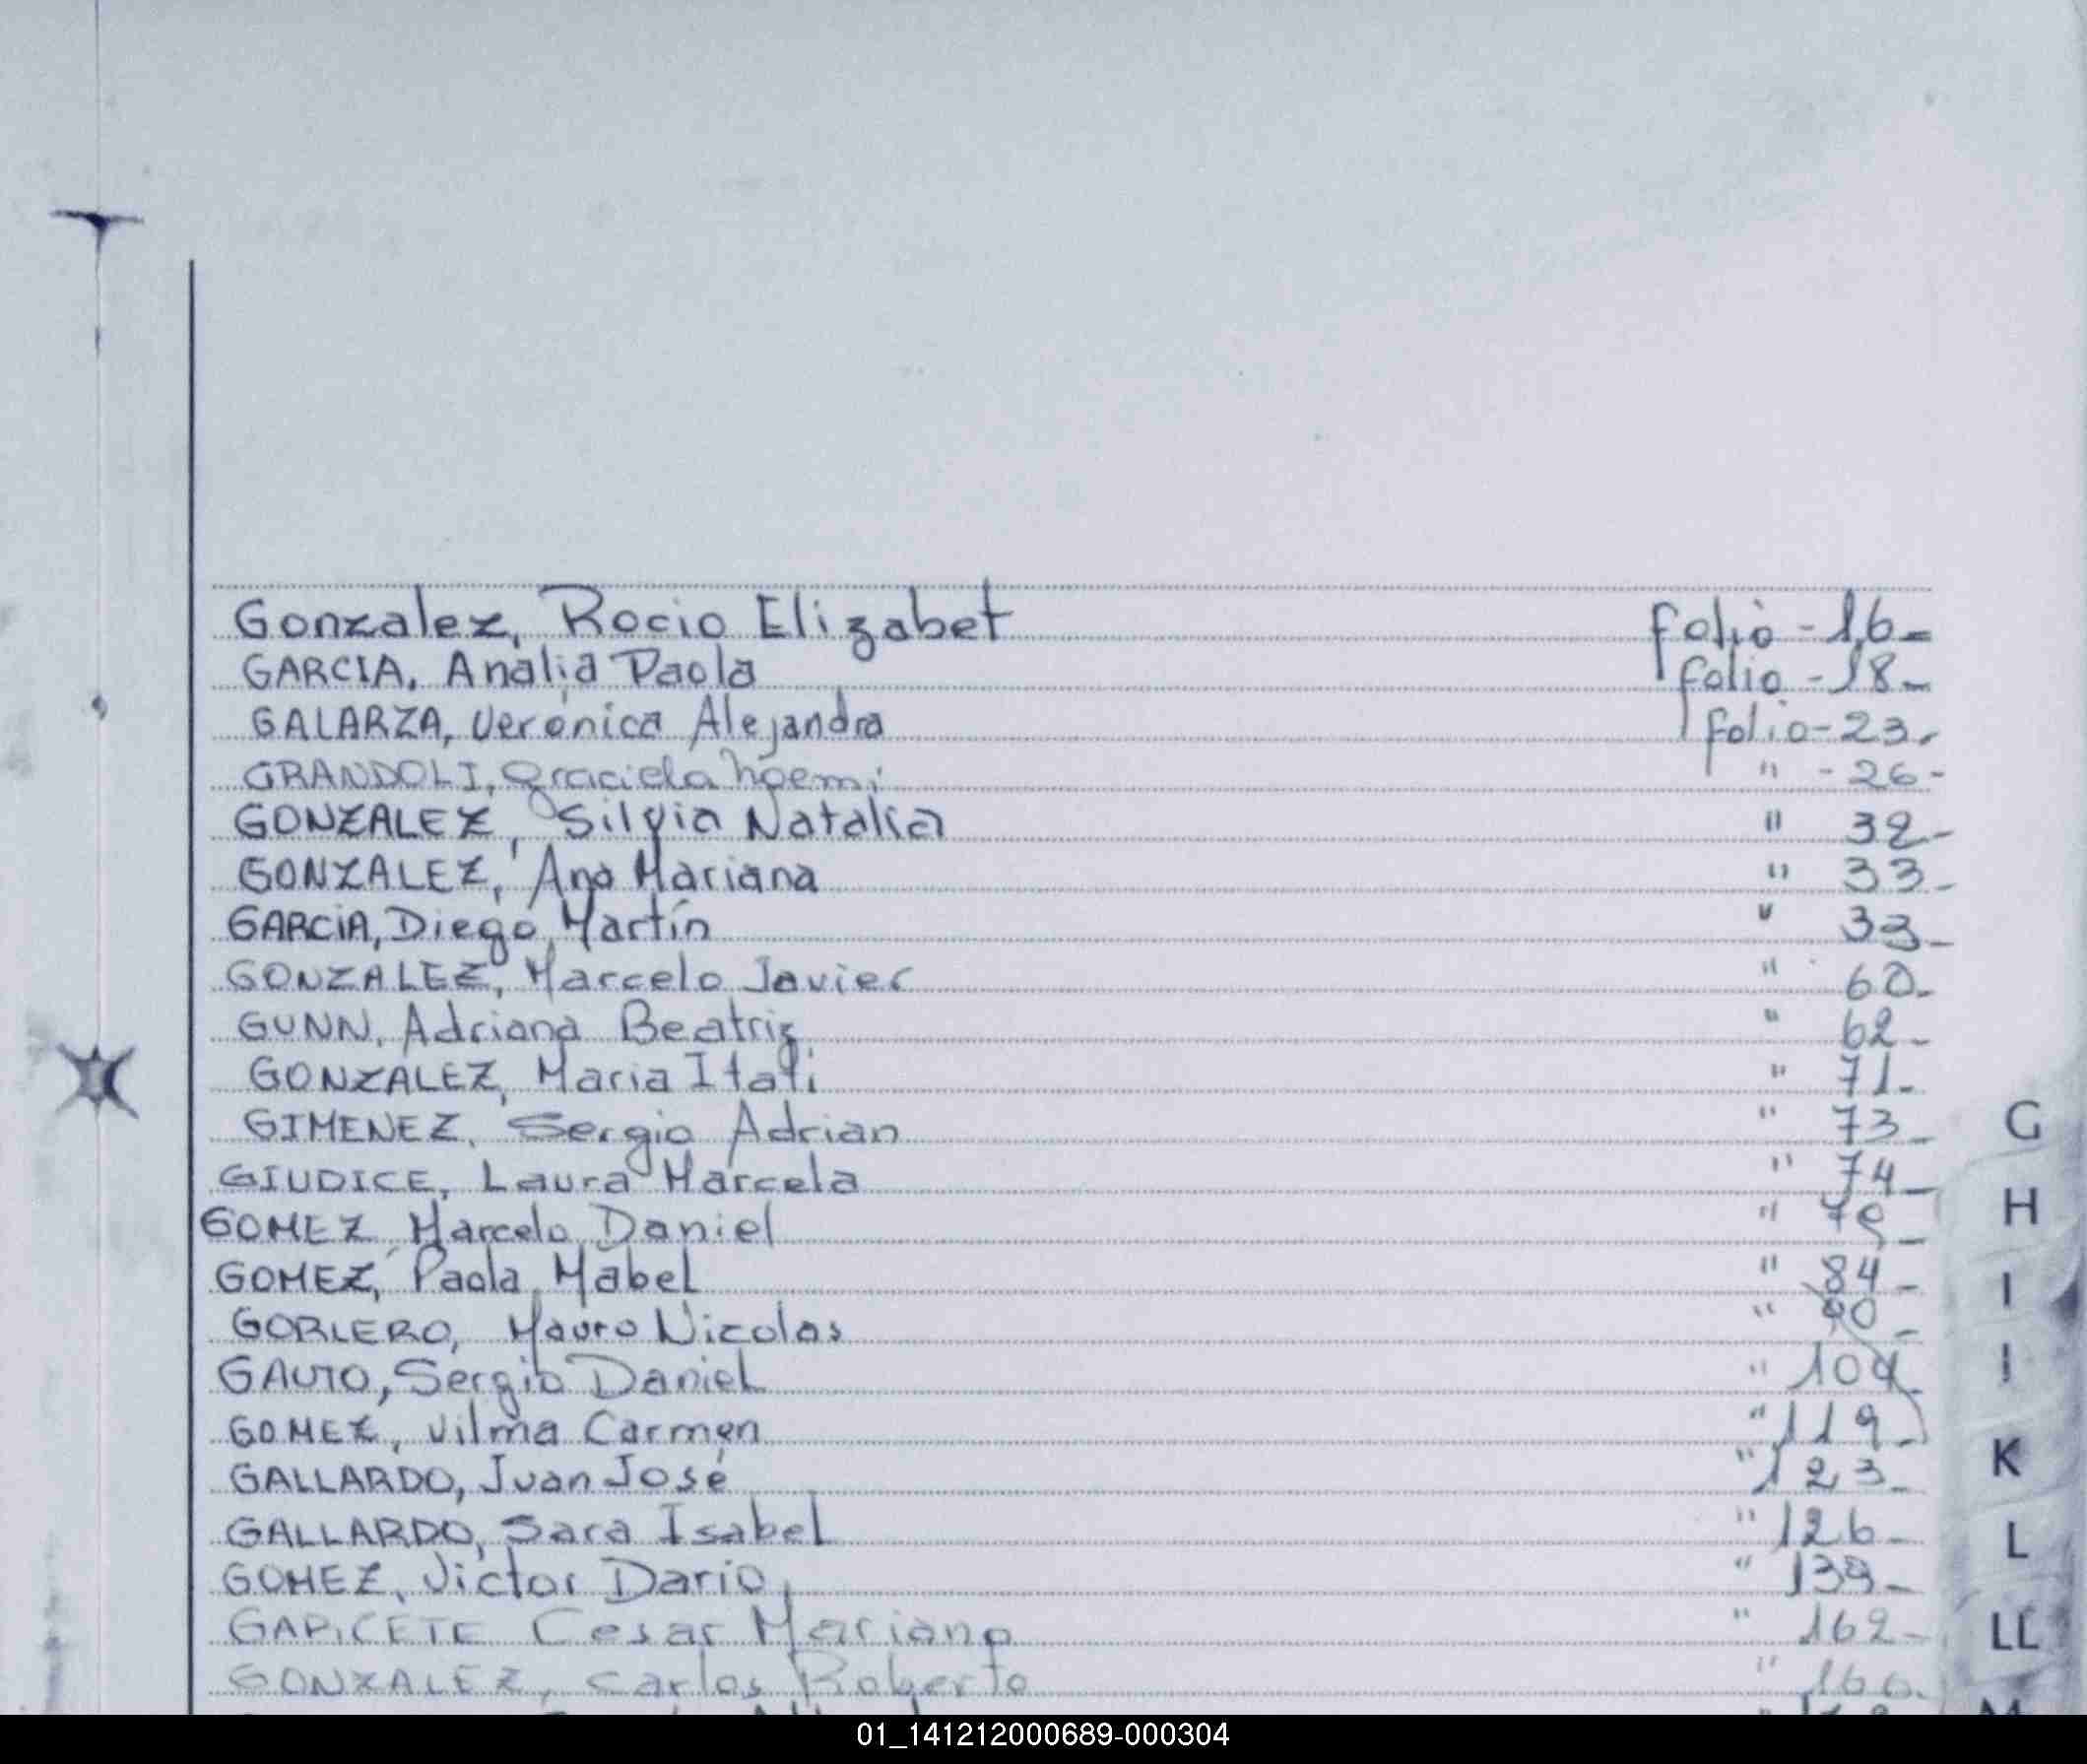 Gonzalez, Rocio Elizabet folio - 16 -
GARCIA, Analia Paola folio - 18 -
GALARZA, Veronica Alejandra folio - 23 -
GRANDOLI, Graciela Noemi " - 26 -
GONZALEZ, Silvia Natalia " 32 -
GONZALEZ, Ana Mariana " 33 -
GARCIA, Diego Martín " 33 -
GONZALEZ, Marcelo Javier " 60 -
GUNN, Adriana Beatriz " 62 -
GONZALEZ, Maria Itati " 71 -
GIMENEZ, Sergio Adrian " 73 -
G
GIUDICE, Laura Marcela " 74 -
H
GOMEZ, Marcelo Daniel "
GOMEZ, Paola Mabel " 84 -
I
GORLERO, Mauro Nicolas " 90 -
GAUTO, Sergio Daniel "
GOMEZ, Vilma Carmen " 119 -
GALLARDO, Juan José " 123 -
K
GALLARDO, Sara Isabel " 126 -
L
GOMEZ, Victor Dario " 139 -
Cesar Mariano " 162 -
LL
GONZALEZ, Carlos Roberto " 166 -
M
01_141212000689-000304